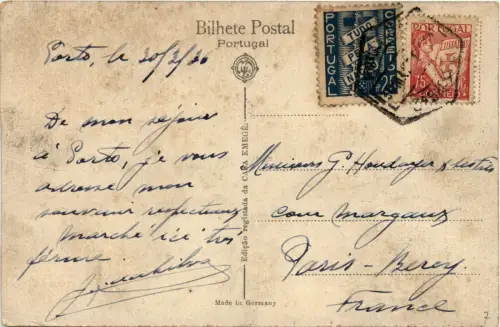 Bilhete Postal
Portugal
Porto, le 20/2/36
De mon séjour
à Porto, je vous
adresse mon
souvenir respectueux
Marché ici très
ferme.
Edição registada da CASA EMEGÊ
Made in Germany
PORTUGAL
TUDO
PELA
CORREIO
25
PORTUGAL
75
CORREIO
Messieurs
cour Margaux
Paris-Bercy
France
7